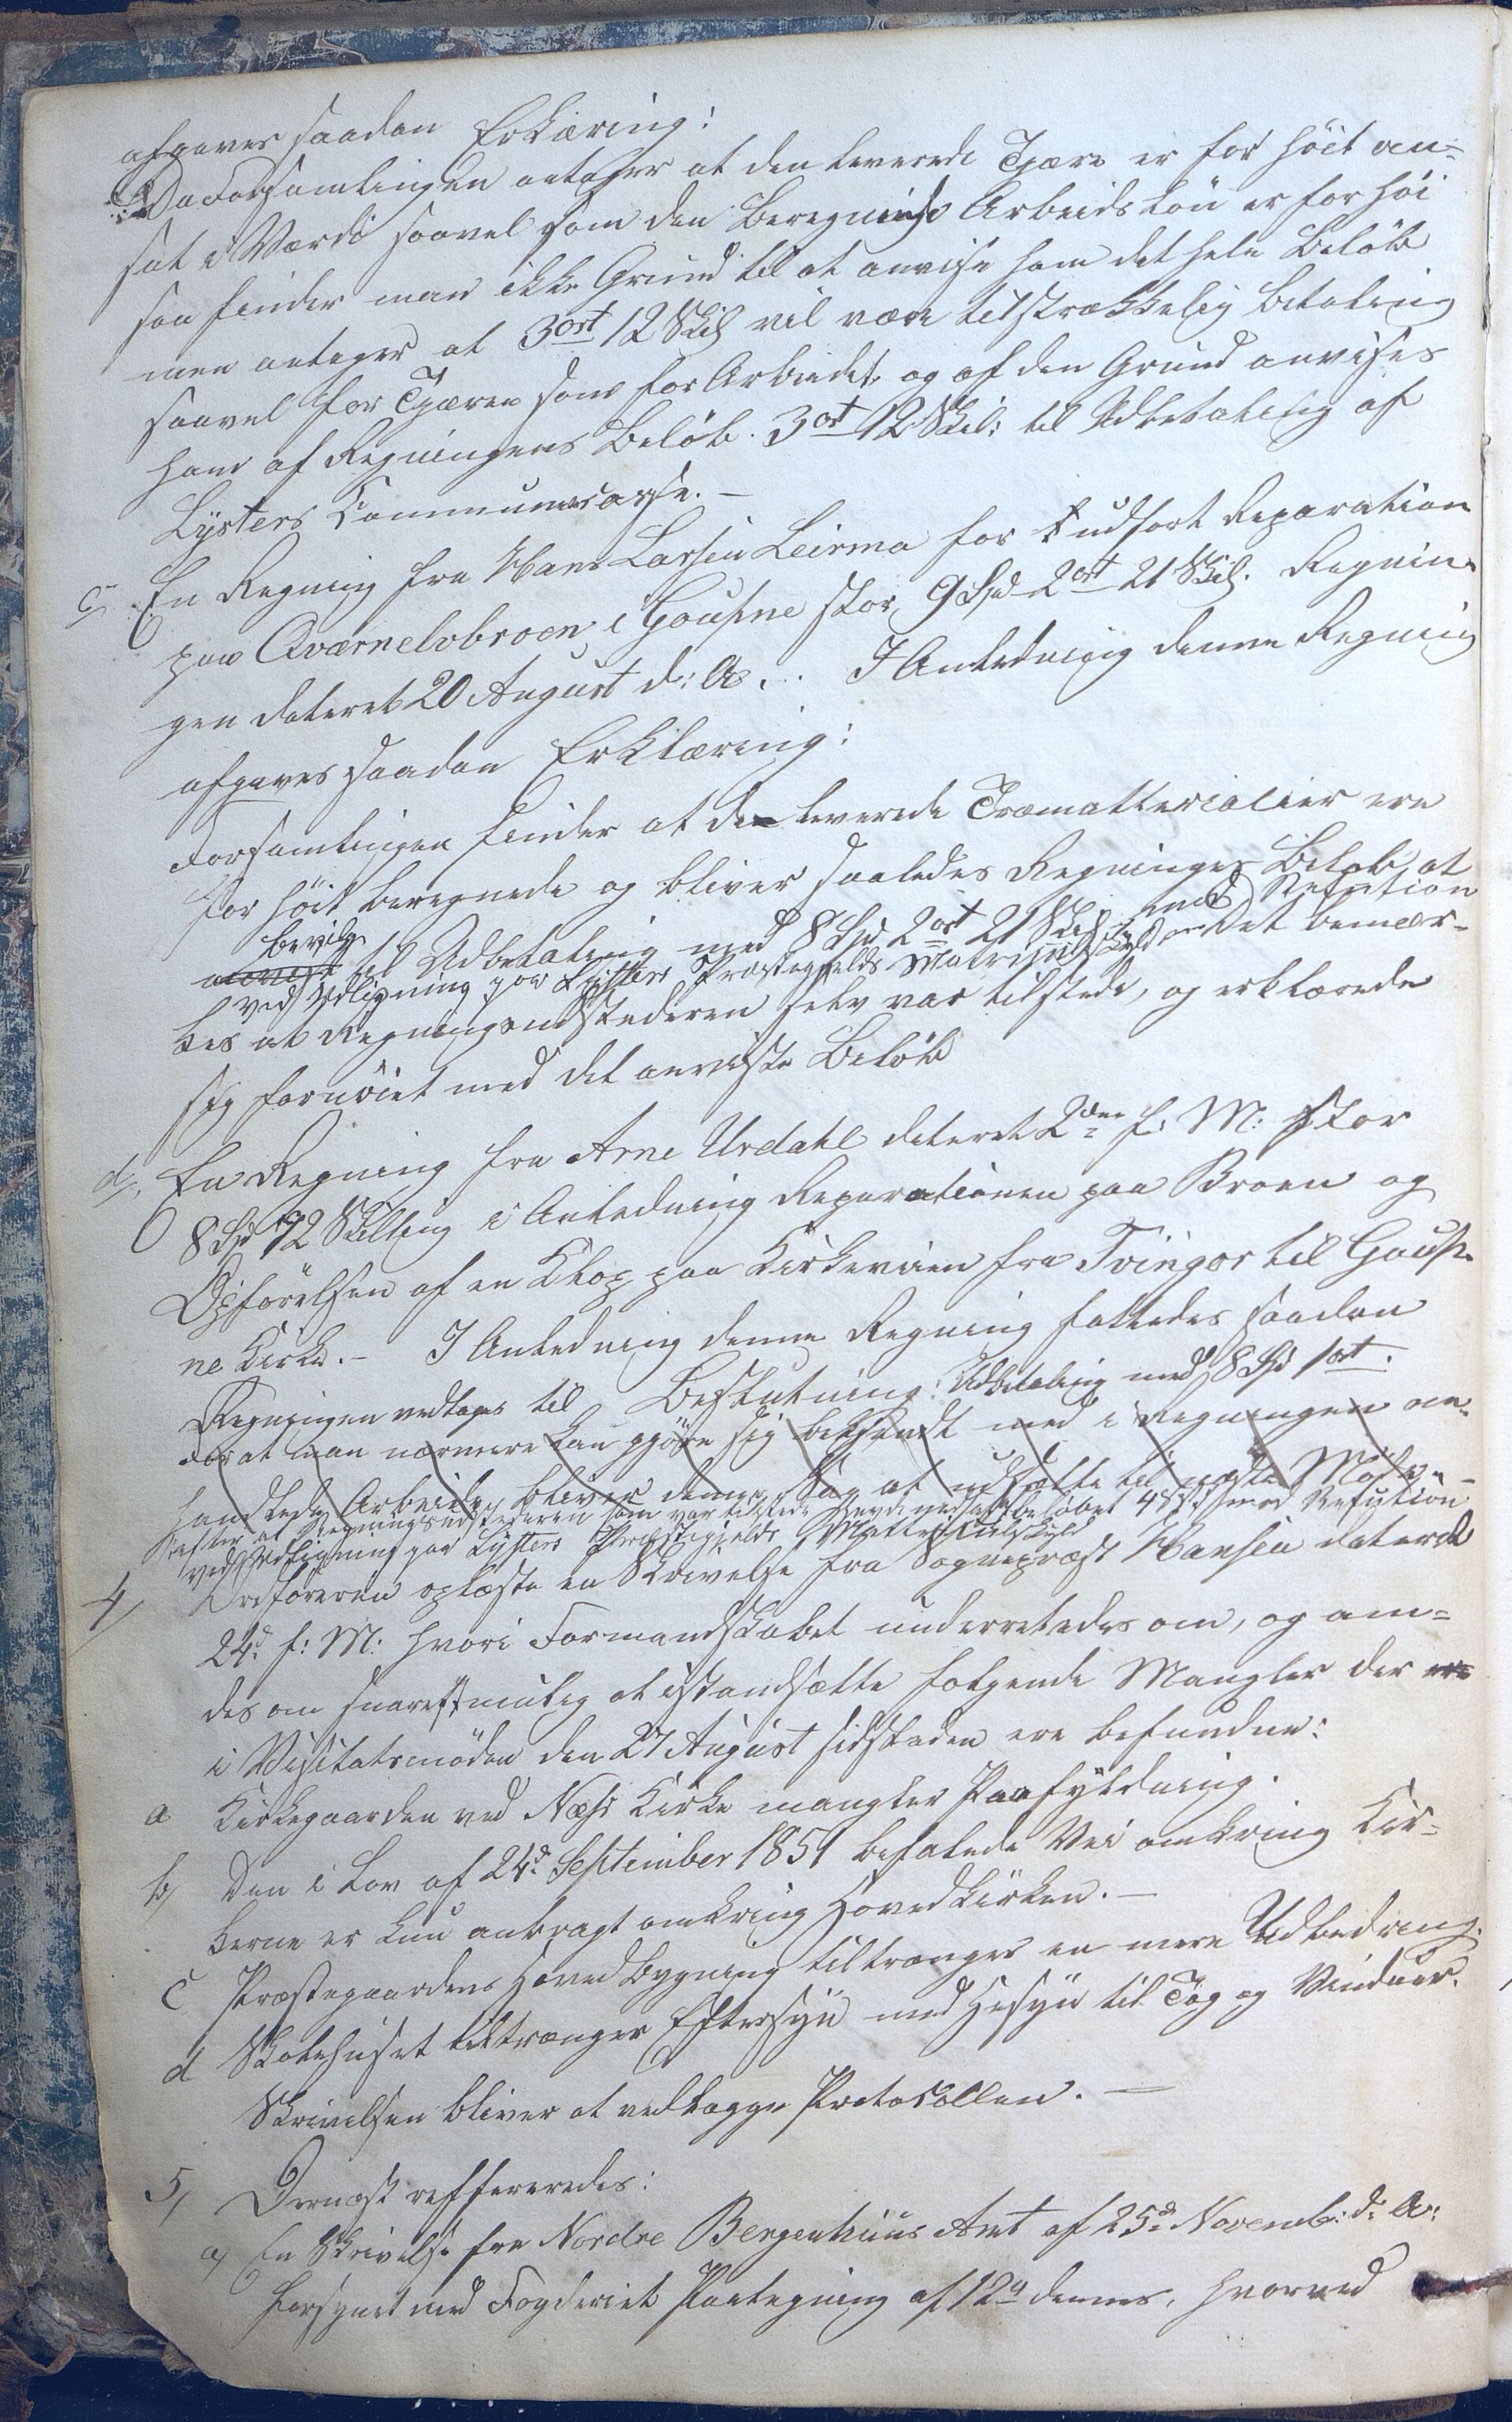 afgaves saadan Erklæring:
Da Forsamlingen antager at den leverede Tjære er for høit an-
sat i Værdi saavel som den beregnede Arbeidsløn er for høi
saa finder man ikke Grund til at anvise ham det hele Beløb
men antager at 3 ort 12 Skil vil være tilstrækkelig Betaling
saavel for Tjæren som for Arbeidet, og af den Grund anvises
ham af Regningens Beløb. 3 ort 12 Skil: til Udbetaling af
Lysters Communecasse. –
c, En Regning fra Hans Larsen Leirmo for udført Reparation
paa Qværnelvbroen i Goupne stor 9 Spd 2 ort 21 Skil. Regnin-
gen dateret 20 August d: A:. I Anledning denne Regning
afgaves saadan Erklæring:
Forsamlingen finder at de leverede Træmatterialier ere
for høit beregnede og bliver saaledes Regninges Beløb at
bevilge
anvise til Udbetaling med 8 Spd 2 ort 21 Skil mod Refution
ved Udligning paa Lysters Præstegjelds Matrikulskyld – Det bemær-
kes at Regningsudstederen selv var tilstede, og erklærede
sig fornøiet med det anviste Beløb
d, En Regning fra Arne Urdahl dateret 2den f: M: stor
8 Spd 72 Skilling i Anledning Reparationen paa Broen og
Opførelsen af en Klop paa Kirkeveien fra Tvingør til Goup-
ne Kirke. – I Anledning denne Regning fattedes saadan
Beslutning:
Regningen vedtages til Udbetaling med 8 Spd 1 ort.
For at man nærmere kan gjøre sig bekjendt med i Regningen om-
handlede Arbeide, bliver denne Sag at udsætte til næste Møde –
Efter at Regningsudstederen som var tilstede havde nedsat Beløbet 48 s mod Refution
ved Udligning paa Lysters Præstegjelds Matrikulskyld
4, Ordføreren oplæste en Skrivelse fra Sognepræst Hansen dateret
24d. f: M: hvori Formandskabet underrettedes om, og an-
des om snarest mulig at istandsætte følgende Mangler der ere
i Visitatsmøden den 27 August sidstleden ere befundne:
a Kirkegaarden ved Næs Kirke mangler Paafyldning.
b, Den i Lov af 24d. September 1851 befalede Vei omkring Kir-
kerne er kun anbragt omkring Hovedkirken. –
c Præstegaardens Hovedbygning tiltrænger en mere Udbedring.
d Skolehuset tiltrænger Eftersyn med Hesyn til Tag og Vinduer.
Skrivelsen bliver at vedlægge Protocollen. –
5, Dernæst reffereredes:
a, En Skrivelse fra Nordre Bergenhuus Amt af 25d. Novemb: d: A:
forsynet med Fogderiets Paategning af 12te dennes, hvorved